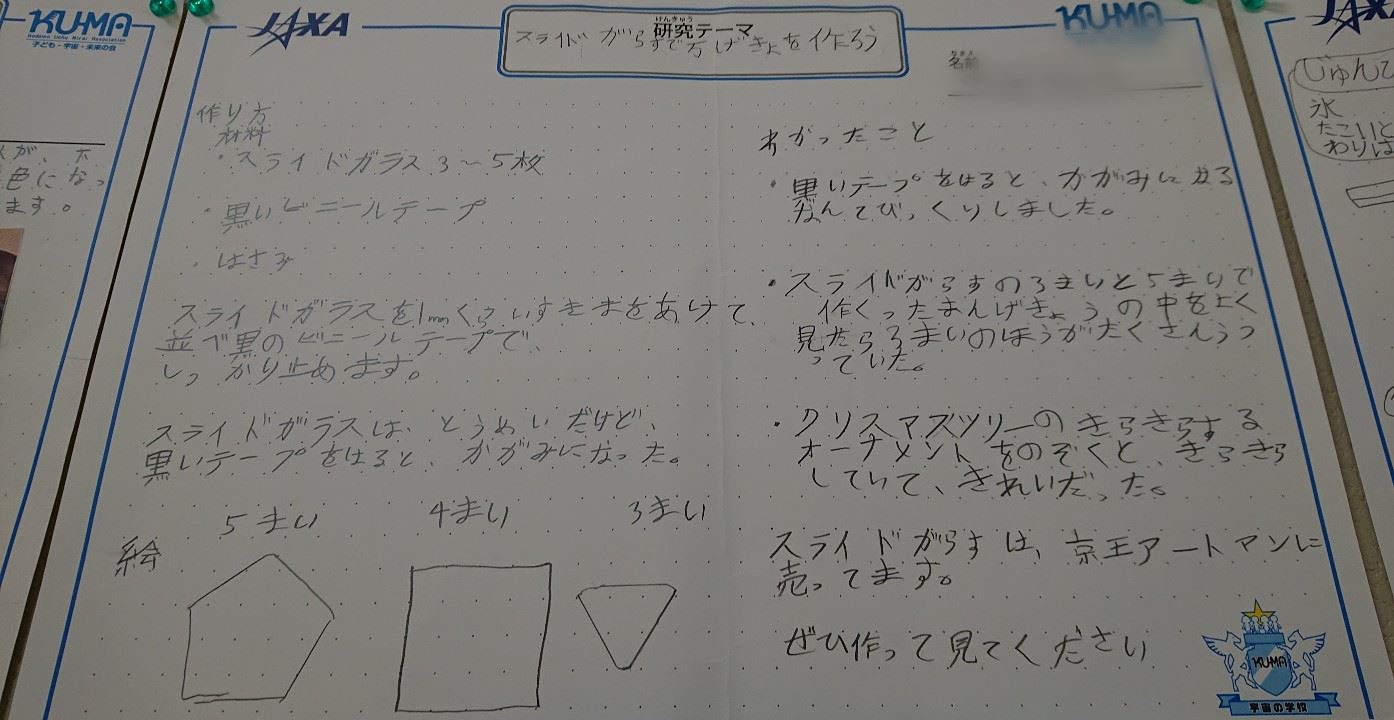 KU-MA
Kodomo Uchu Mirai Association
子ども・宇宙・未来の会
色になっ
ます。
JAXA
けんきゅう
研究テーマ
スライドがらすで万げきょを作ろう
KU-MA
なまえ
名前
作り方
材料
・スライドガラス3〜5枚
・黒いビニールテープ
・はさみ
スライドガラスを1mmくらいすきまをあけて、
並べ黒のビニールテープで、
しっかり止めます。
スライドガラスは、とうめいだけど、
黒いテープをはると、かがみになった。
絵
5まい
4まい
3まい
わかったこと
・黒いテープをはると、かがみになる
なんてびっくりしました。
・スライドがらすの3まいと5まいで
作くったまんげきょうの中をよく
見たら3まいのほうがたくさんうつ
っていた。
・クリスマスツリーのきらきらする
オーナメントをのぞくと、きらきら
していて、きれいだった。
スライドがらすは、京王アートマンに
売ってます。
ぜひ作って見てください
KU-MA
宇宙の学校
JAXA
じゅんび
氷
たこいと
わりは